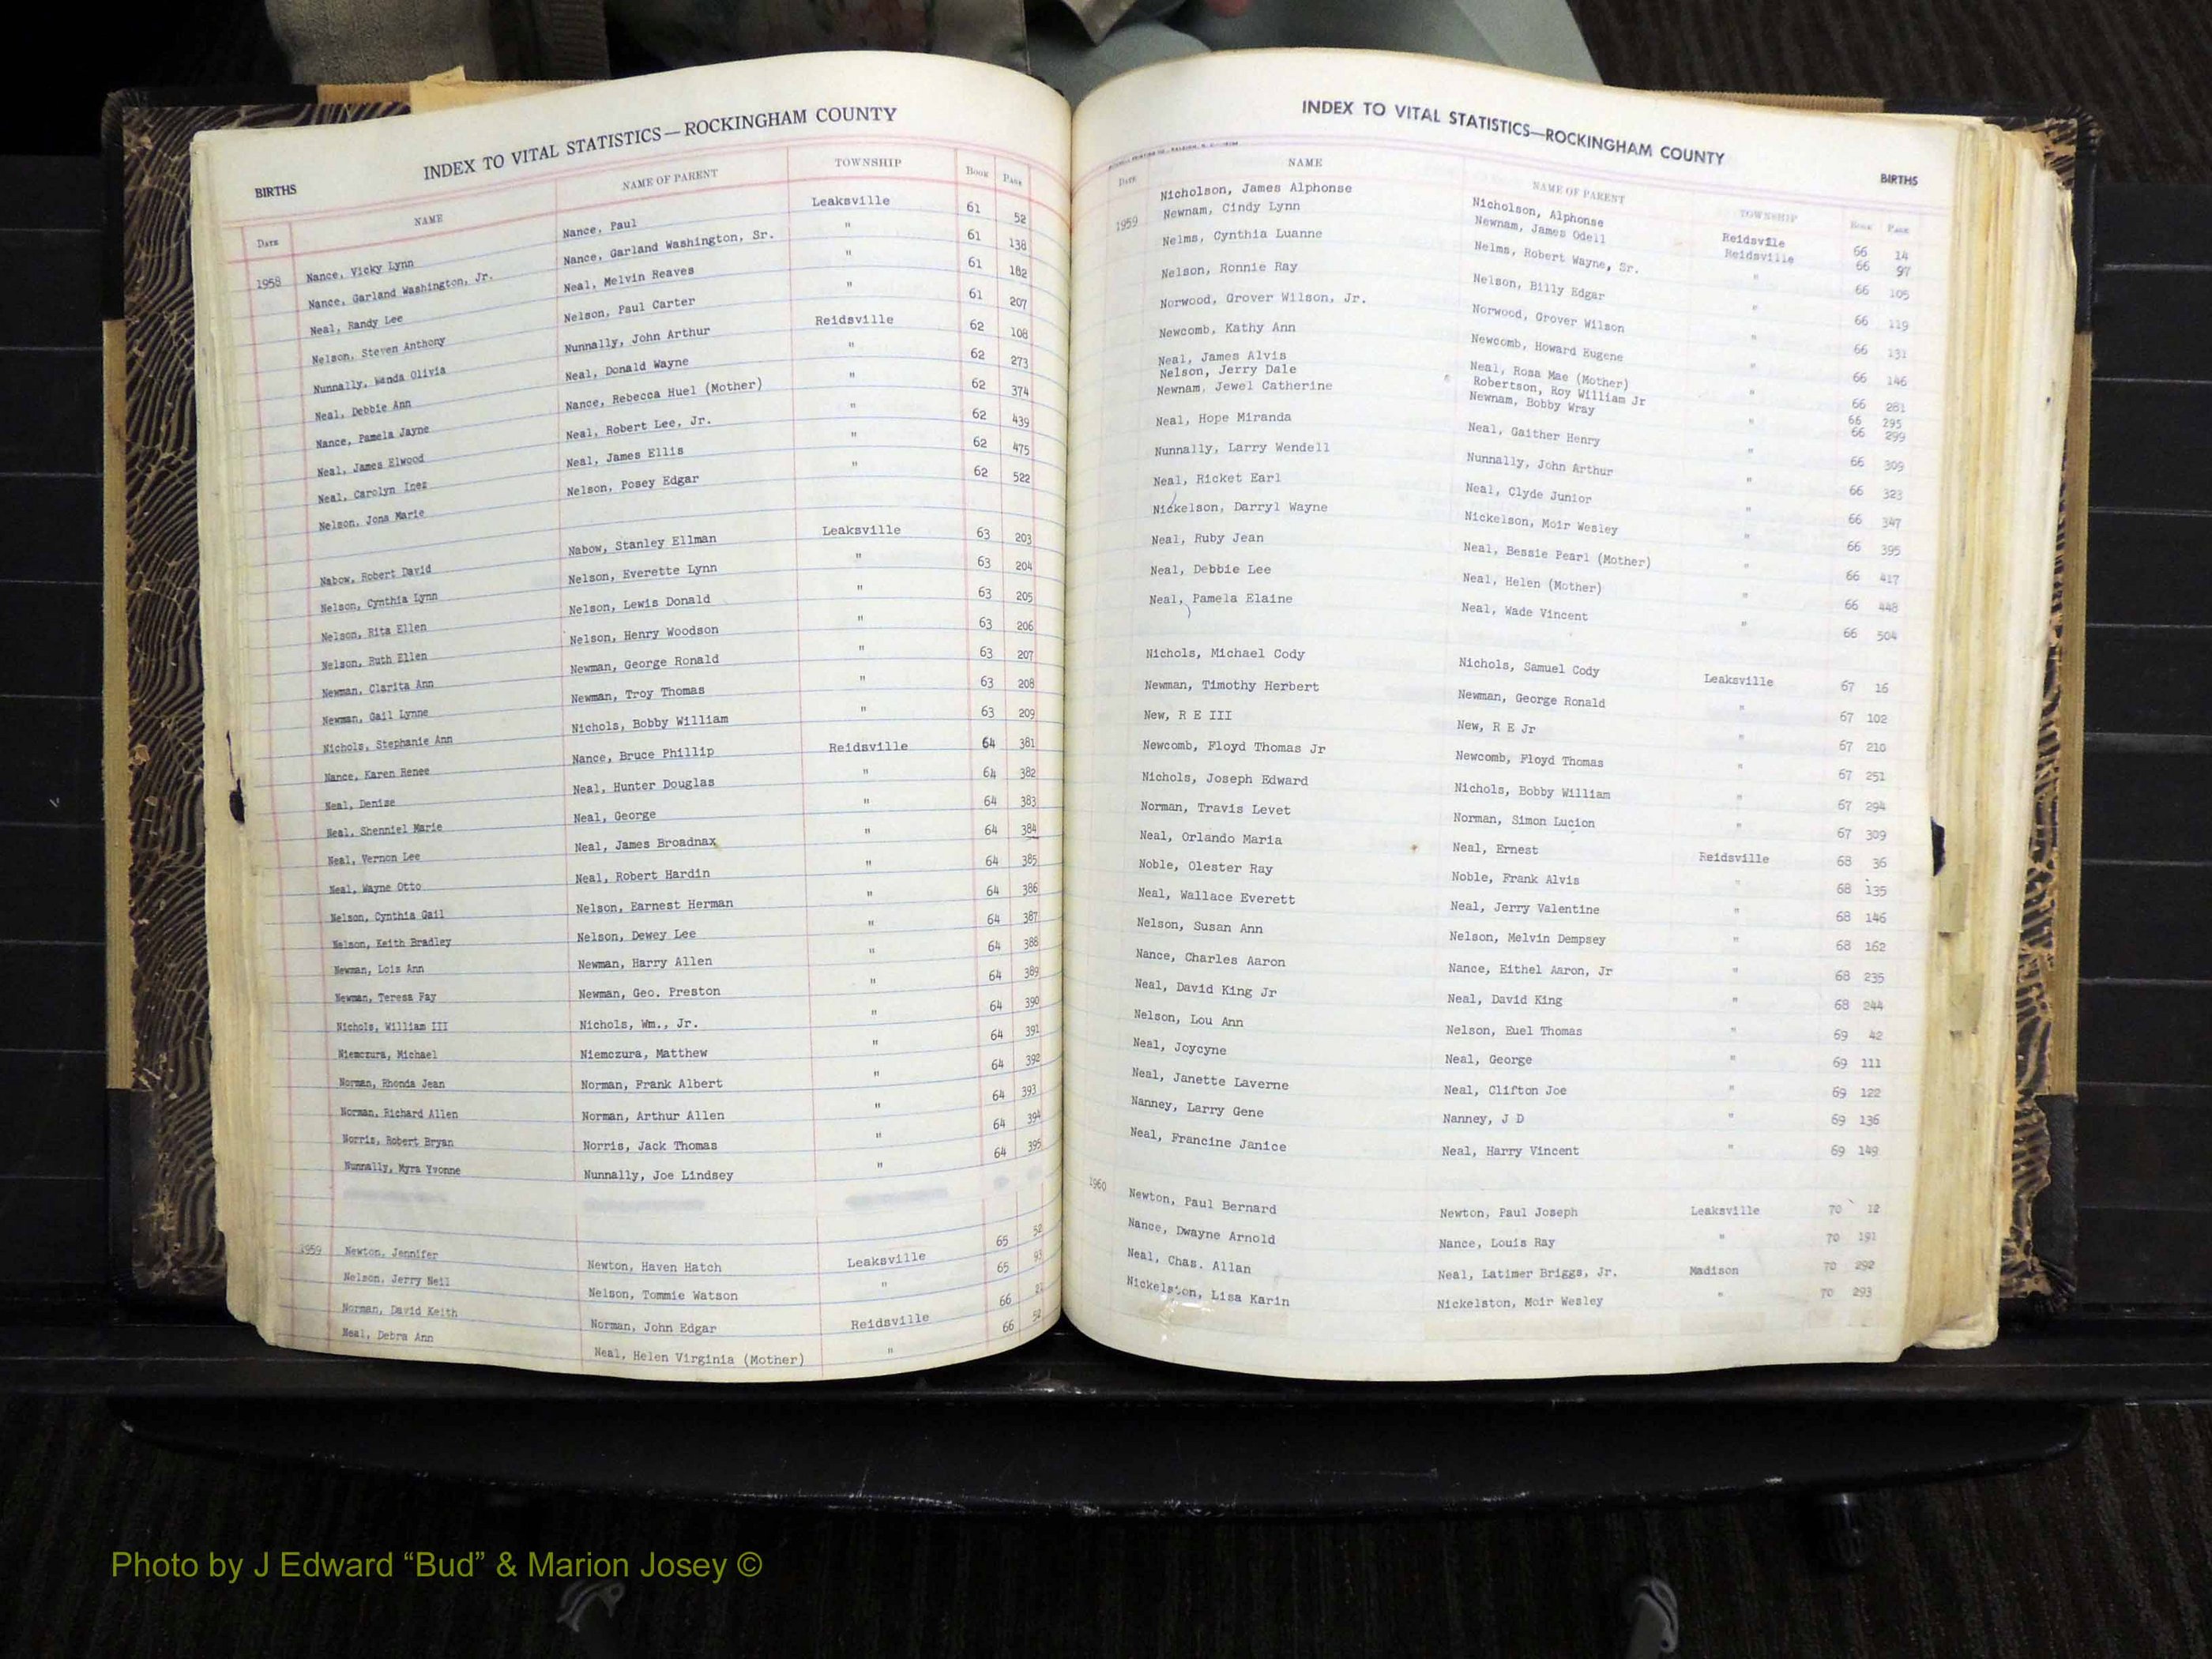 INDEX TO VITAL STATISTICS — ROCKINGHAM COUNTY
BIRTHS
DATE NAME NAME OF PARENT TOWNSHIP BOOK PAGE
1958 Nance, Vicky Lynn Nance, Paul Leaksville 61 52
Nance, Garland Washington, Jr. Nance, Garland Washington, Sr. " 61 138
Neal, Randy Lee Neal, Melvin Reaves " 61 182
Nelson, Steven Anthony Nelson, Paul Carter " 61 207
Nunnally, Wanda Olivia Nunnally, John Arthur Reidsville 62 108
Neal, Debbie Ann Neal, Donald Wayne " 62 273
Nance, Pamela Jayne Nance, Rebecca Huel (Mother) " 62 374
Neal, James Elwood Neal, Robert Lee, Jr. " 62 439
Neal, Carolyn Inez Neal, James Ellis " 62 475
Nelson, Jona Marie Nelson, Posey Edgar " 62 522
Nabow, Robert David Nabow, Stanley Ellman Leaksville 63 203
Nelson, Cynthia Lynn Nelson, Everette Lynn " 63 204
Nelson, Rita Ellen Nelson, Lewis Donald " 63 205
Nelson, Ruth Ellen Nelson, Henry Woodson " 63 206
Newman, Clarita Ann Newman, George Ronald " 63 207
Newman, Gail Lynne Newman, Troy Thomas " 63 208
Nichols, Stephanie Ann Nichols, Bobby William " 63 209
Nance, Karen Renee Nance, Bruce Phillip Reidsville 64 381
Neal, Denise Neal, Hunter Douglas " 64 382
Neal, Shenniel Marie Neal, George " 64 383
Neal, Vernon Lee Neal, James Broadnax " 64 384
Neal, Wayne Otto Neal, Robert Hardin " 64 385
Nelson, Cynthia Gail Nelson, Earnest Herman " 64 386
Nelson, Keith Bradley Nelson, Dewey Lee " 64 387
Newman, Lois Ann Newman, Harry Allen " 64 388
Newman, Teresa Fay Newman, Geo. Preston " 64 389
Nichols, William III Nichols, Wm., Jr. " 64 390
Niemczura, Michael Niemczura, Matthew " 64 391
Norman, Rhonda Jean Norman, Frank Albert " 64 392
Norman, Richard Allen Norman, Arthur Allen " 64 393
Norris, Robert Bryan Norris, Jack Thomas " 64 394
Nunnally, Myra Yvonne Nunnally, Joe Lindsey " 64 395
1959 Newton, Jennifer Newton, Haven Hatch Leaksville 65 52
Nelson, Jerry Neil Nelson, Tommie Watson " 65 93
Norman, David Keith Norman, John Edgar Reidsville 66
Neal, Debra Ann Neal, Helen Virginia (Mother) " 66 52
INDEX TO VITAL STATISTICS—ROCKINGHAM COUNTY
BIRTHS
DATE NAME NAME OF PARENT TOWNSHIP BOOK PAGE
Nicholson, James Alphonse Nicholson, Alphonse Reidsville 66 14
1959 Newnam, Cindy Lynn Newnam, James Odell Reidsville 66 97
Nelms, Cynthia Luanne Nelms, Robert Wayne, Sr. " 66 105
Nelson, Ronnie Ray Nelson, Billy Edgar " 66 119
Norwood, Grover Wilson, Jr. Norwood, Grover Wilson " 66 131
Newcomb, Kathy Ann Newcomb, Howard Eugene " 66 146
Neal, James Alvis Neal, Rosa Mae (Mother) " 66 281
Nelson, Jerry Dale Robertson, Roy William Jr 66 295
Newnam, Jewel Catherine Newnam, Bobby Wray " 66 299
Neal, Hope Miranda Neal, Gaither Henry " 66 309
Nunnally, Larry Wendell Nunnally, John Arthur " 66 323
Neal, Ricket Earl Neal, Clyde Junior " 66 347
Nickelson, Darryl Wayne Nickelson, Moir Wesley " 66 395
Neal, Ruby Jean Neal, Bessie Pearl (Mother) " 66 417
Neal, Debbie Lee Neal, Helen (Mother) " 66 448
Neal, Pamela Elaine Neal, Wade Vincent " 66 504
Nichols, Michael Cody Nichols, Samuel Cody Leaksville 67 16
Newman, Timothy Herbert Newman, George Ronald " 67 102
New, R E III New, R E Jr " 67 210
Newcomb, Floyd Thomas Jr Newcomb, Floyd Thomas " 67 251
Nichols, Joseph Edward Nichols, Bobby William " 67 294
Norman, Travis Levet Norman, Simon Lucion " 67 309
Neal, Orlando Maria Neal, Ernest Reidsville 68 36
Noble, Olester Ray Noble, Frank Alvis " 68 135
Neal, Wallace Everett Neal, Jerry Valentine " 68 146
Nelson, Susan Ann Nelson, Melvin Dempsey " 68 162
Nance, Charles Aaron Nance, Eithel Aaron, Jr " 68 235
Neal, David King Jr Neal, David King " 68 244
Nelson, Lou Ann Nelson, Euel Thomas " 69 42
Neal, Joycyne Neal, George " 69 111
Neal, Janette Laverne Neal, Clifton Joe " 69 122
Nanney, Larry Gene Nanney, J D " 69 136
Neal, Francine Janice Neal, Harry Vincent " 69 149
1960 Newton, Paul Bernard Newton, Paul Joseph Leaksville 70 12
Nance, Dwayne Arnold Nance, Louis Ray " 70 191
Neal, Chas. Allan Neal, Latimer Briggs, Jr. Madison 70 292
Nickelston, Lisa Karin Nickelston, Moir Wesley " 70 293
Photo by J Edward “Bud” & Marion Josey ©